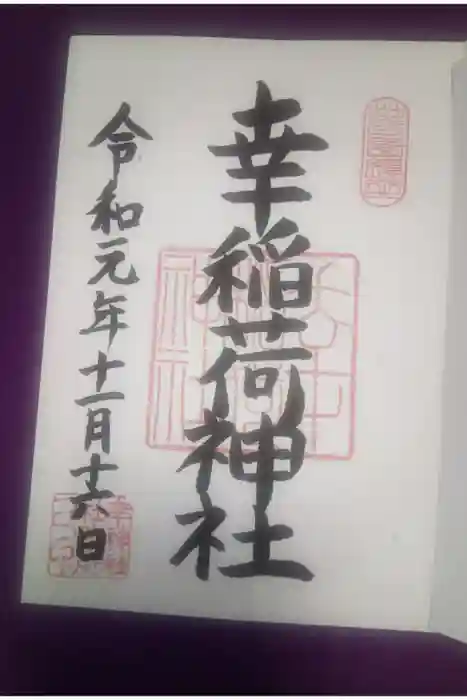 幸稲荷神社
令和元年十一月十六日